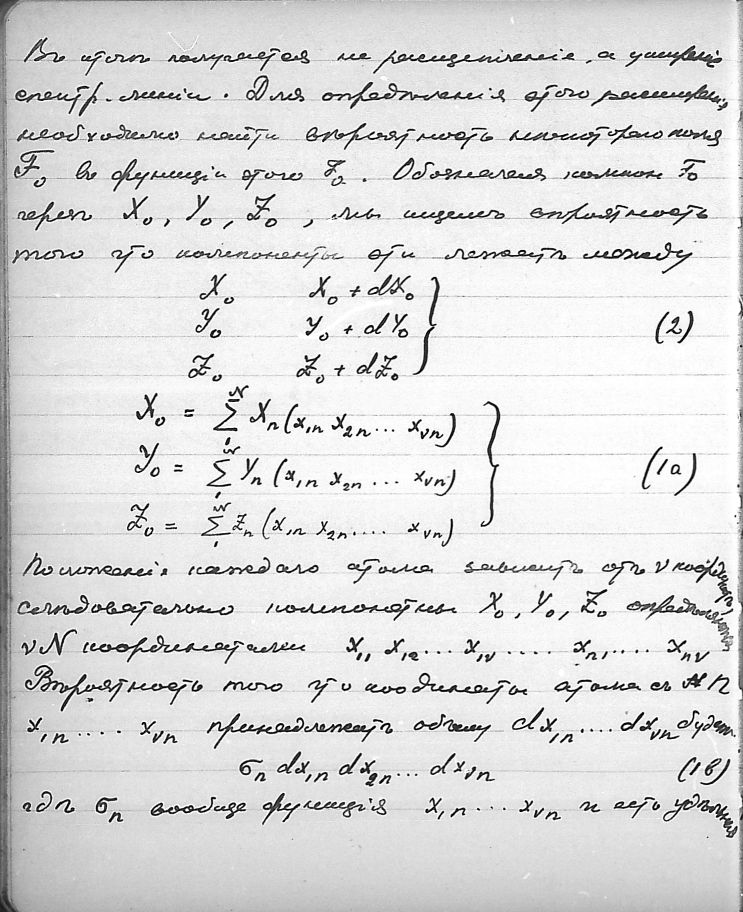 Въ итогѣ получается не расщепленіе, а уширеніе
спектр. линіи. Для опредѣленія этого расширенія
необходимо найти вѣроятность некотораго поля
F₀ въ функціи этого F₀. Обозначая компон F₀
через X₀, Y₀, Z₀, мы ищемъ вѣроятность
того что компоненты эти лежатъ между
X₀ X₀ + dX₀
Y₀ Y₀ + dY₀ (2)
Z₀ Z₀ + dZ₀
X₀ = ∑₁ᴺ Xₙ (x₁ₙ x₂ₙ ... xᵥₙ)
Y₀ = ∑₁ᴺ Yₙ (x₁ₙ x₂ₙ ... xᵥₙ) (1a)
Z₀ = ∑₁ᴺ Zₙ (x₁ₙ x₂ₙ .... xᵥₙ)
Положеніе каждаго атома зависитъ отъ ν координатъ,
слѣдовательно компонетны X₀, Y₀, Z₀ опредѣляются
νN координатами x₁₁ x₁₂ ... x₁ᵥ ..... xₙ₁ .... xₙᵥ
Вѣроятность того что коодинаты атома съ № n
x₁ₙ .... xᵥₙ принадлежатъ объему dx₁ₙ .... dxᵥₙ будетъ
σₙ dx₁ₙ dx₂ₙ ... dxᵥₙ (1b)
гдѣ σₙ вообще функція x₁ₙ ... xᵥₙ и есть удѣльная